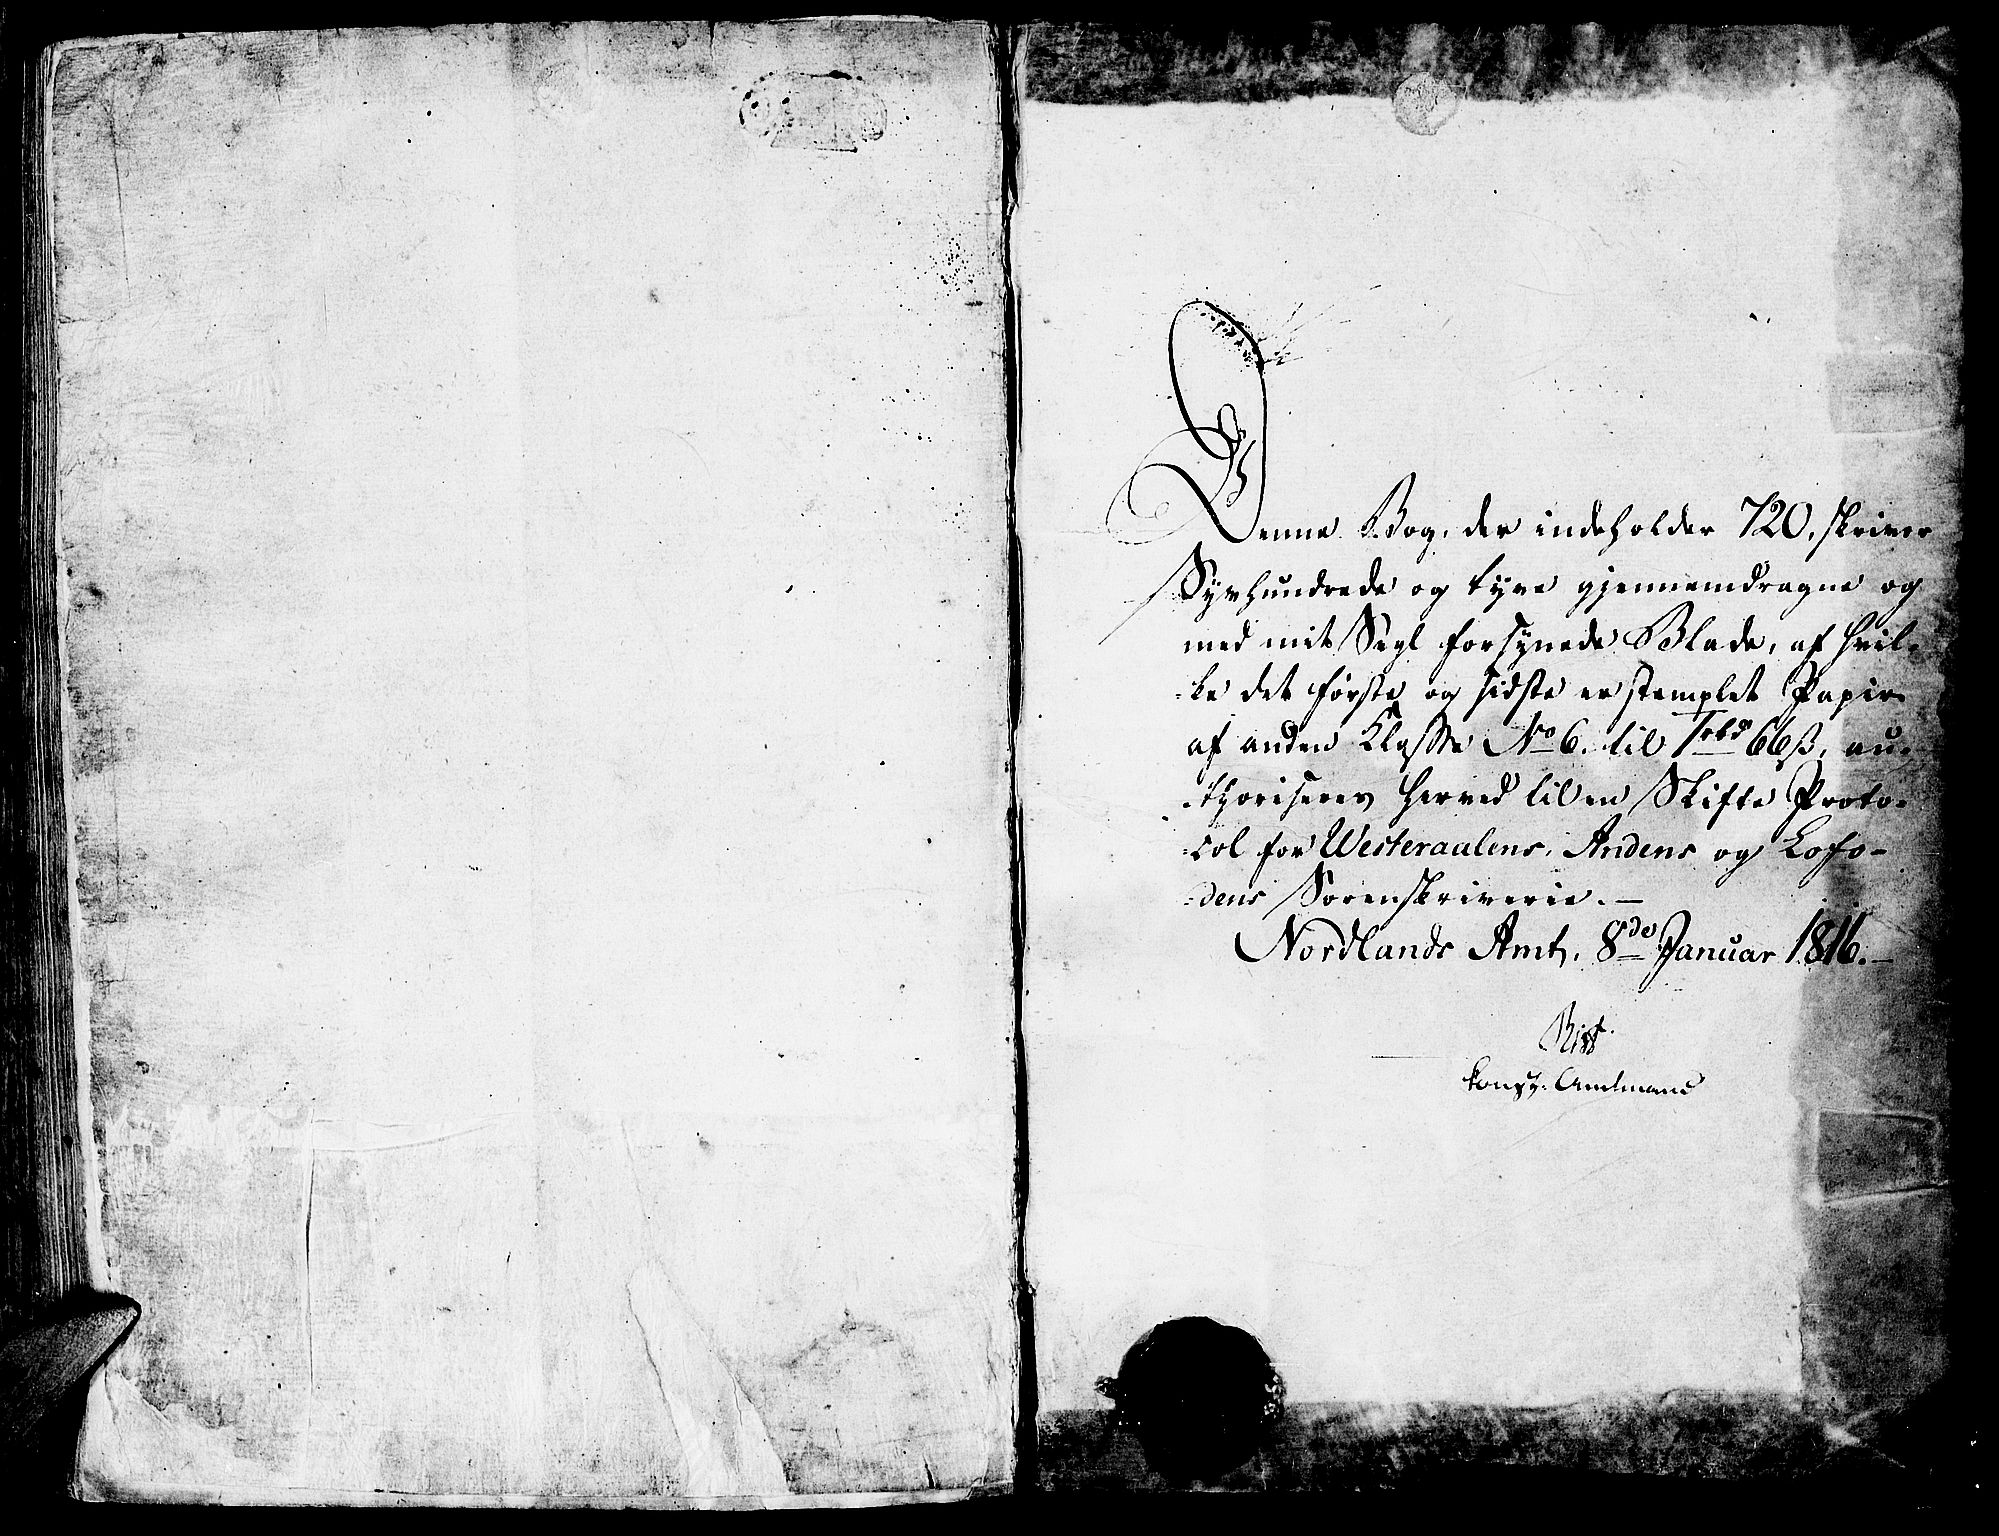 Denne Bog, der indeholder 720, skriver
Syvhundrede og tyve gjennemdragne og
med mit Segl forsynede Blade, af hvil-
-ke det første og sidste er stemplet Papir
af anden Klasse No 6. til 1 rbd 66 ß, au-
-thoriseres herved til en Skifte Proto-
-col for Westeraalens, Andens og Lofo-
-dens Sorenskriverie. —
Nordlands Amt, 8de Januar 1816. —
const. Amtmand